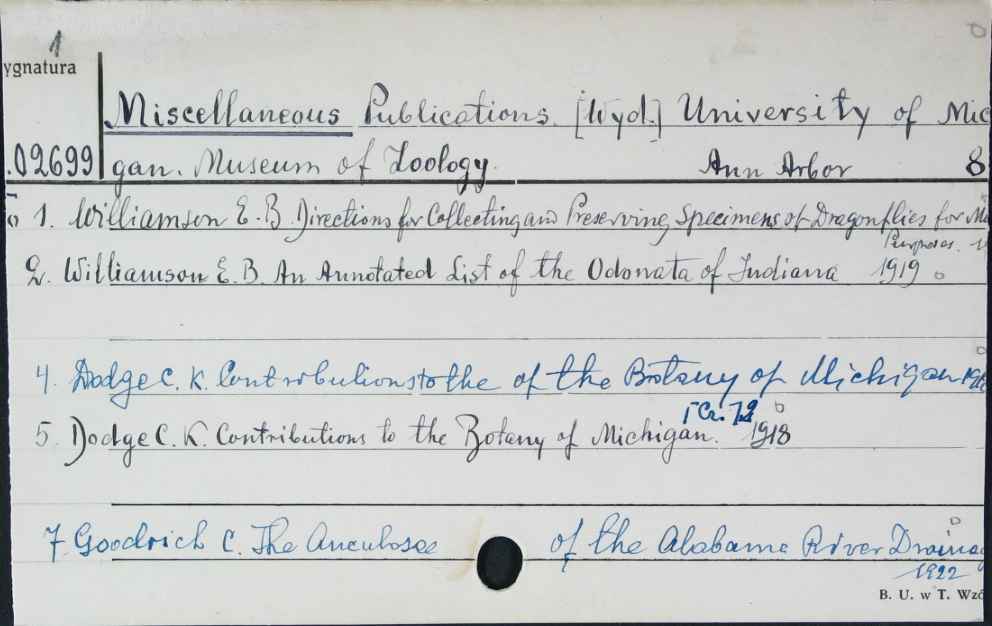 1
ygnatura
Miscellaneous Publications. [Wyd.] University of Mic
.02699 gan. Museum of Zoology. Ann Arbor 8
1. Williamson E. B. Directions for Collecting and Preserving Specimens of Dragonflies for Mu
Purposes.
2. Williamson E. B. An Annotated List of the Odonata of Indiana 1919
4. Dodge C. K. Contributions to the of the Botany of Michigan
[Cz.] 2
5. Dodge C. K. Contributions to the Botany of Michigan. 1918
7 Goodrich C. The Anculosae of the Alabama River Draina
1922
B. U. w T. Wzó